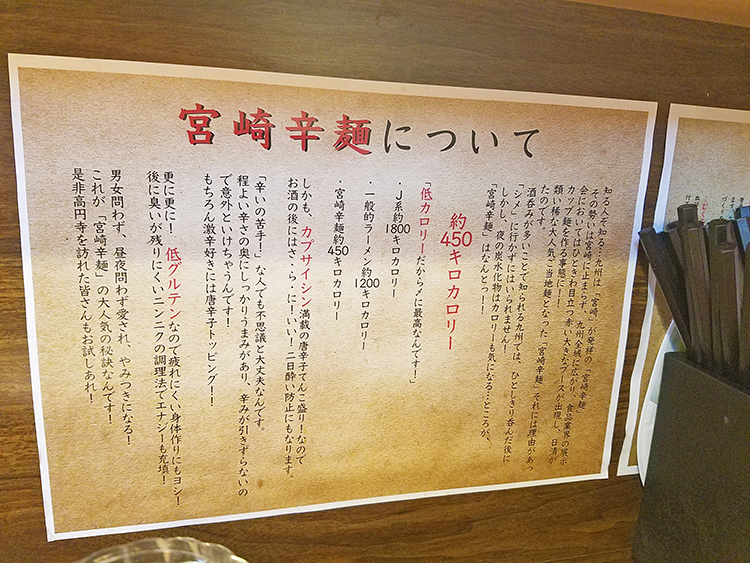 宮崎辛麺について
知る人ぞ知る…九州は「宮崎」が発祥の「宮崎辛麺」
その勢いは宮崎に止まらず、九州全域に広がり、食品業界の展示
会においてはひときわ目立つ赤い大きなブースが出現し、日清が
カップ麺を作る事態に!!
類い稀な大人気ご当地麺となった「宮崎辛麺」それには理由があっ
たのです。
酒呑みが多いことで知られる九州では、ひとしきり呑んだ後に
「シメ」に行かずにはいられません!
しかし、夜の炭水化物はカロリーも気になる…ところが、
「宮崎辛麺」はなんとっ!!
約450キロカロリー
「低カロリーだから〆に最高なんです!」
・J系約1800キロカロリー
・一般的ラーメン約1200キロカロリー
・宮崎辛麺約450キロカロリー
しかも、カプサイシン満載の唐辛子てんこ盛り!なので
お酒の後にはさ・ら・に!いい!二日酔い防止にもなります。
「辛いの苦手!」な人でも不思議と大丈夫なんです。
程よい辛さの奥にしっかりうまみがあり、辛みが引きずらないの
で意外といけちゃうんです!
もちろん激辛好きには唐辛子トッピング!!
更に更に!低グルテンなので疲れにくい身体作りにもヨシ!
後に臭いが残りにくいニンニクの調理法でエナジーも充填!
男女問わず、昼夜問わず愛され、やみつきになる!
これが「宮崎辛麺」の大人気の秘訣なんです!
是非高円寺を訪れた皆さんもお試しあれ!